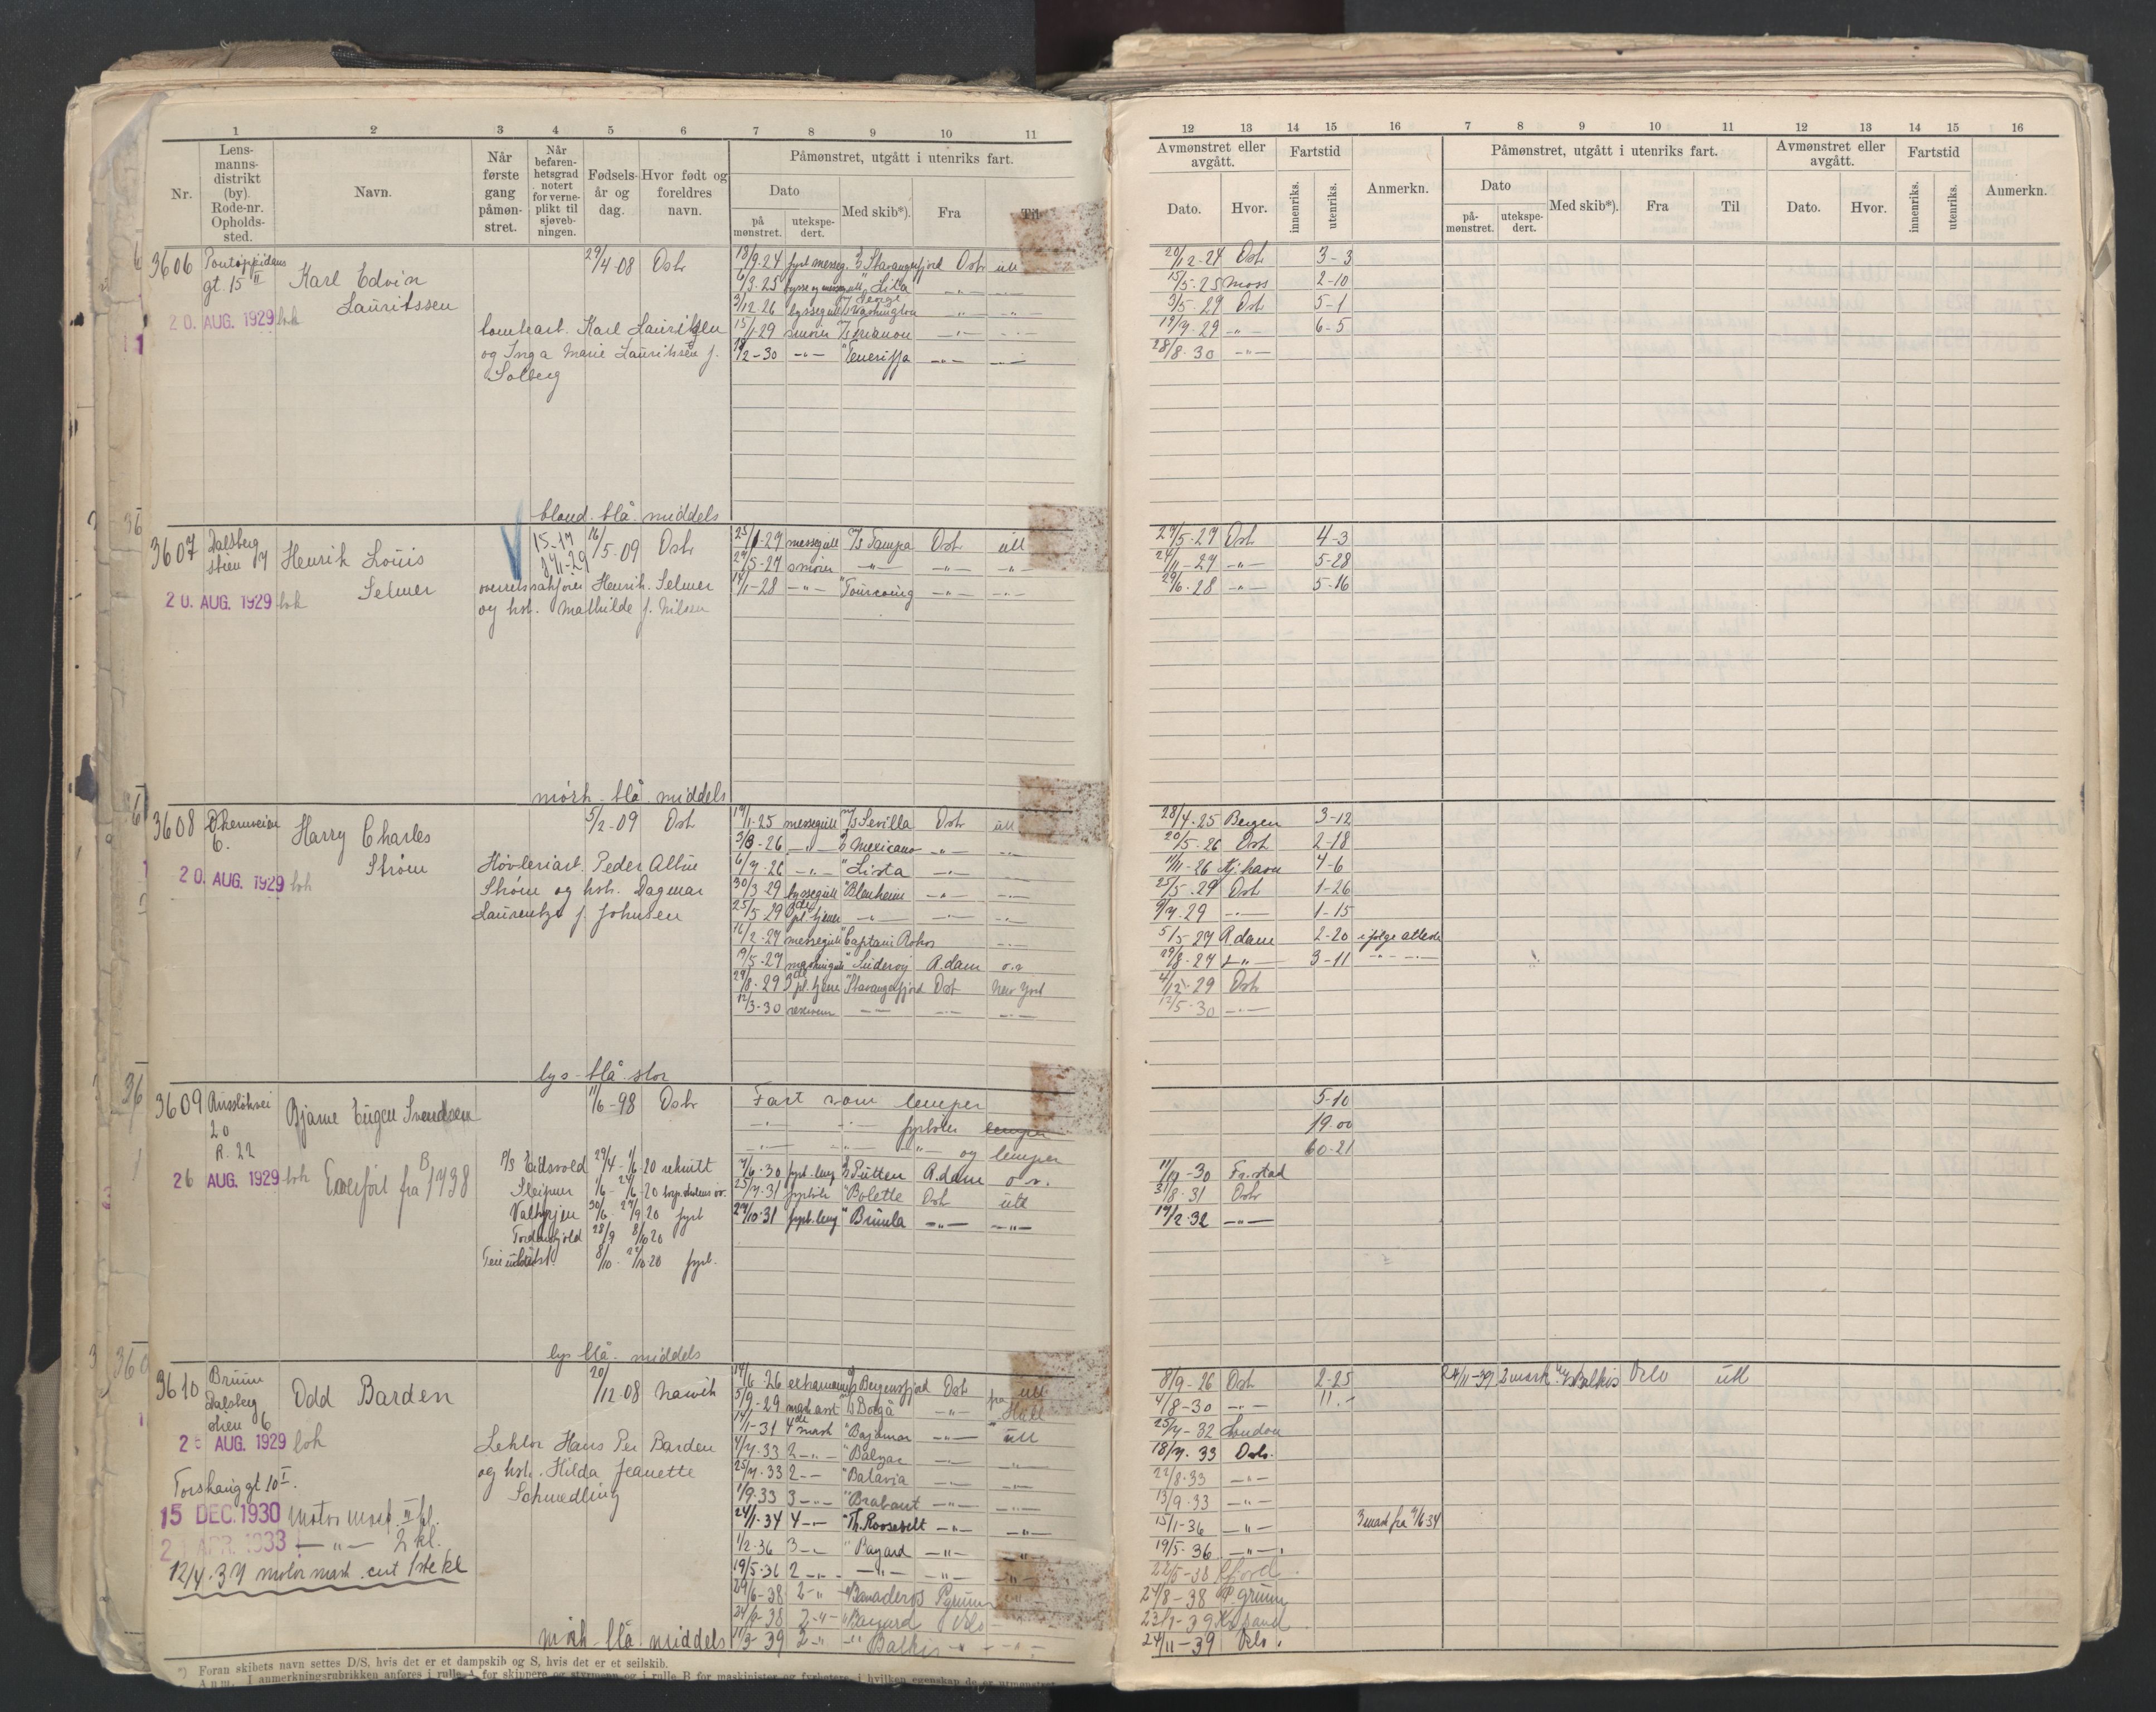 1 2 3 4 5 6 7 8 9 10 11
Nr. Lensmannsdistrikt (by). Rode-nr. Opholdssted. Navn. Når første gang påmønstret. Når befarenhetsgrad notert for verneplikt til sjøvebningen. Fødselsår og dag. Hvor født og foreldres navn. Påmønstret, utgått i utenriks fart.
Dato
på mønstret. utekspedert. Med skib*). Fra Til
12 13 14 15 16 7 8 9 10 11 12 13 14 15 16
Avmønstret eller avgått. Fartstid Anmerkn. Påmønstret, utgått i utenriks fart. Avmønstret eller avgått. Fartstid Anmerkn.
Dato. Hvor. innenriks. utenriks. Dato påmønstret. utekspedert. Med skib*). Fra Til Dato. Hvor. innenriks. utenriks.
3606 Pontoppidans gt. 15 II Karl Edvin Lauritssen 29/4-08 Oslo
20. AUG. 1929 bok
Karl Lauritzen
og Inga Marie Lauritssen f.
Solberg
18/9-24 Stavangerfjord Oslo utl 20/12-24 Oslo 3-3
6/3-25 Lita -"- -"- 15/5-25 Moss 2-10
3/12-26 byssegutt George Washington -"- -"- 3/5-29 Oslo 5-1
15/1-29 smører M/S Brianon -"- -"- 19/7-29 -"- 6-5
-"- Teneriffa -"- -"- 28/8-30 -"-
blond-blå-middels
3607 Dalsbergstien 17 Henrik Louis Selmer 15-17 16/5-09 Oslo
20. AUG. 1929 bok
overretssakfører Henrik Selmer
og hst. Mathilde f. Nilsen
25/1-27 messegutt M/S Tampa Oslo utl 27/5-27 Oslo 4-3
27/5-27 smører -"- -"- -"- 24/11-27 -"- 5-28
14/1-28 -"- "Tourcoing -"- -"- 29/6-28 -"- 5-16
mørk-blå-middels
3608 Harry Charles Strøm 5/2-09 Oslo
20. AUG. 1929 bok
Høvleriarb. Peder Altin
Strøm og hst. Dagmar
Laurentze f. Johnsen
messegutt M/S Sevilla Oslo utl 28/4-25 Bergen 3-12
3/3-26 -"- Mexicano -"- -"- 20/5-26 Oslo 2-18
6/7-26 -"- "Lista -"- 11/11-26 Kj.havn 4-6
30/3-29 byssegutt "Blenheim -"- -"- 25/5-29 Oslo 1-26
25/5-29 -"- -"- -"- 9/7-29 -"- 1-15
16/2-27 messegutt "Captain Rokos -"- 5/5-27 A.dam 2-20 ifølge attest
19/5-27 "Suderoy A.dam o.v. 29/8-27 -"- 3-11 -"-
29/8-29 "Stavangerfjord Oslo New York 4/12-29 Oslo
12/3-30 -"- -"- -"- 12/5-30 -"-
lys-blå-stor
3609 Russløkvei 20 R. 22 Bjarne Eugen Svendsen 11/6-98 Oslo
26 AUG. 1929 bok Overført fra B 1738
Fart som lemper 5-10
-"- -"- fyrbøter 19.00
-"- -"- -"- og lemper 60-21
P/S Eidsvold 29/4-1/6 20 rekrutt
Sleipner 1/6-24/6 20
Valkyrjen 30/6-27/9 20 fyrb
Tordenskjold 28/9 8/10 20
8/10-27/10-20 fyrb.
7/6-30 fyrb.lemp Putten A.dam o.v. 11/12-30 Fr.stad
25/7-31 fyrbøt "Bolette Oslo utl 31/8-31 Oslo
27/10-31 fyrb.lemp "Brumla -"- -"- 17/2-32 -"-
lys-blå-middels
3610 Bruun Dalsbergstien 6 Odd Barden 20/12-08 Narvik
26 AUG. 1929 bok
Torshauggt 10 I.
15 DEC. 1930 Motor mask. III kl.
21 APR. 1933 -"- 2 kl.
12/4-37 motor mask. cert 1ste kl
Lektor Hans Per Barden
og hst. Hilda Jeanette
Schmedling
14/6-26 Bergensfjord Oslo utl 8/9-26 Oslo 2-25
5/9-29 mask.asst "Borgå -"- fra Hull 4/8-30 -"- 11.-
14/1-31 4de mask "Bajamar -"- "utl 25/7-32 London
4/7-33 2 -"- "Balzac -"- -"- 18/7-33 Oslo.
25/7-33 2 -"- "Batavia -"- -"- 22/8-33 -"-
1/9-33 3 -"- "Brabant -"- -"- 13/9-33 -"-
24/1-34 4 -"- "Th. Roosevelt -"- -"- 15/1-36 -"- 3 mask fra 9/6-34
1/2-36 3 -"- "Bayard -"- -"- 19/5-36 -"-
19/5-36 2 -"- -"- -"- -"- 22/5-38
29/6-38 2 -"- "Banaderos P.grunn 24/8-38 P.grunn
24/8-38 2 -"- "Bayard Oslo 23/1-39 Kr.sand
11/3-39 2 -"- "Balkis -"- -"- 24/11-39 Oslo.
24/11-39 2 mask. M/S Balkis Oslo utl
mørk-blå-middels
*) Foran skibets navn settes D/S, hvis det er et dampskib og S, hvis det er et seilskib.
Anm. I anmerkningsrubrikken anføres i rulle A for skippere og styrmenn og i rulle B for maskinister og fyrbøtere, i hvilken egenskap de er utmønstret